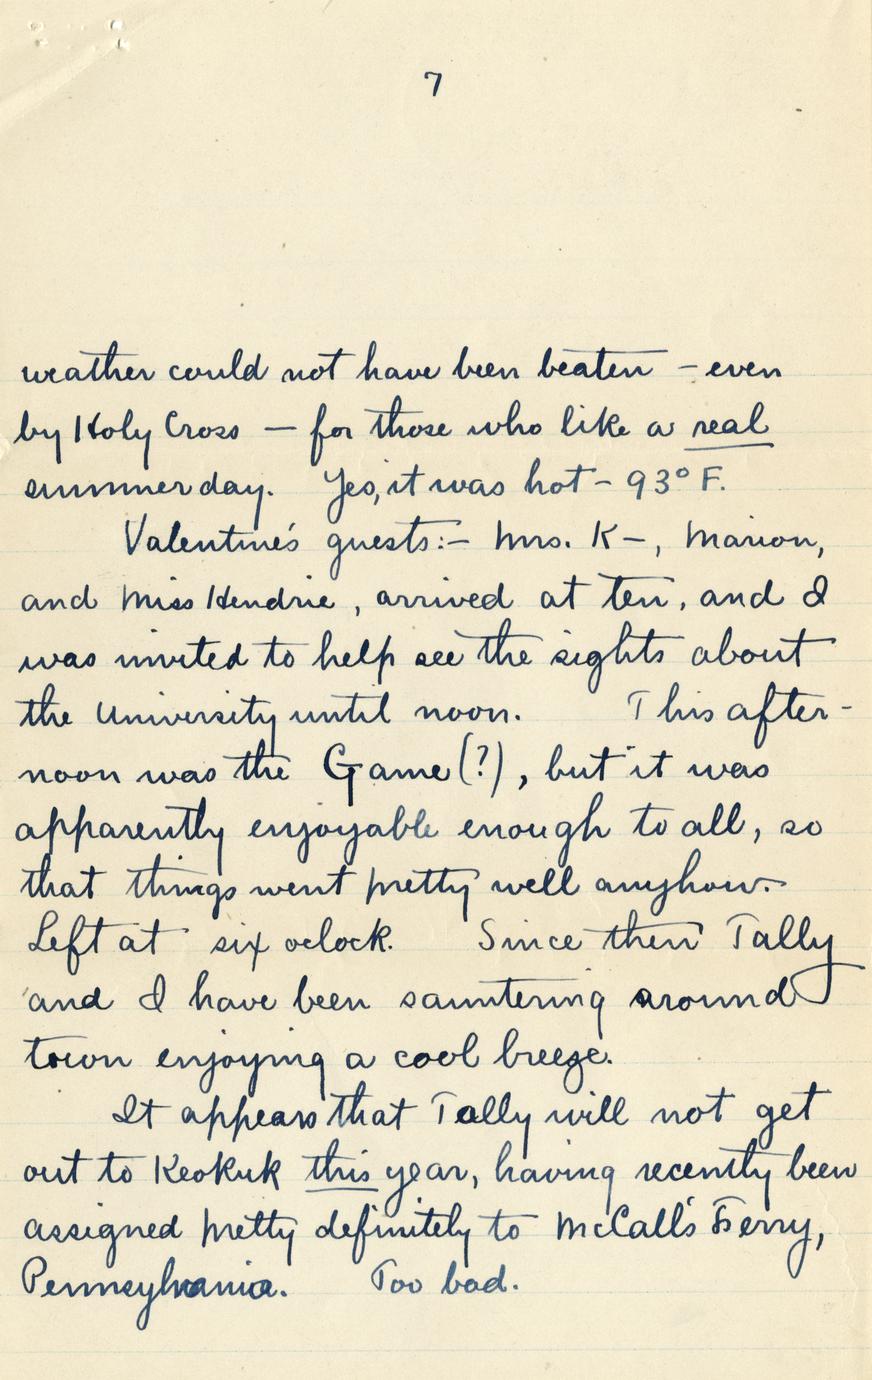 7
weather could not have been beaten – even
by Holy Cross – for those who like a real
summer day. Yes, it was hot – 93° F.
Valentine's guests:– Mrs. K–, Marion,
and Miss Hendrie, arrived at ten, and I
was invited to help see the sights about
the University until noon. This after-
noon was the Game(?), but it was
apparently enjoyable enough to all, so
that things went pretty well anyhow.
Left at six oclock. Since then Tally
and I have been sauntering around
town enjoying a cool breeze.
It appears that Tally will not get
out to Keokuk this year, having recently been
assigned pretty definitely to McCall's Ferry,
Pennsylvania. Too bad.